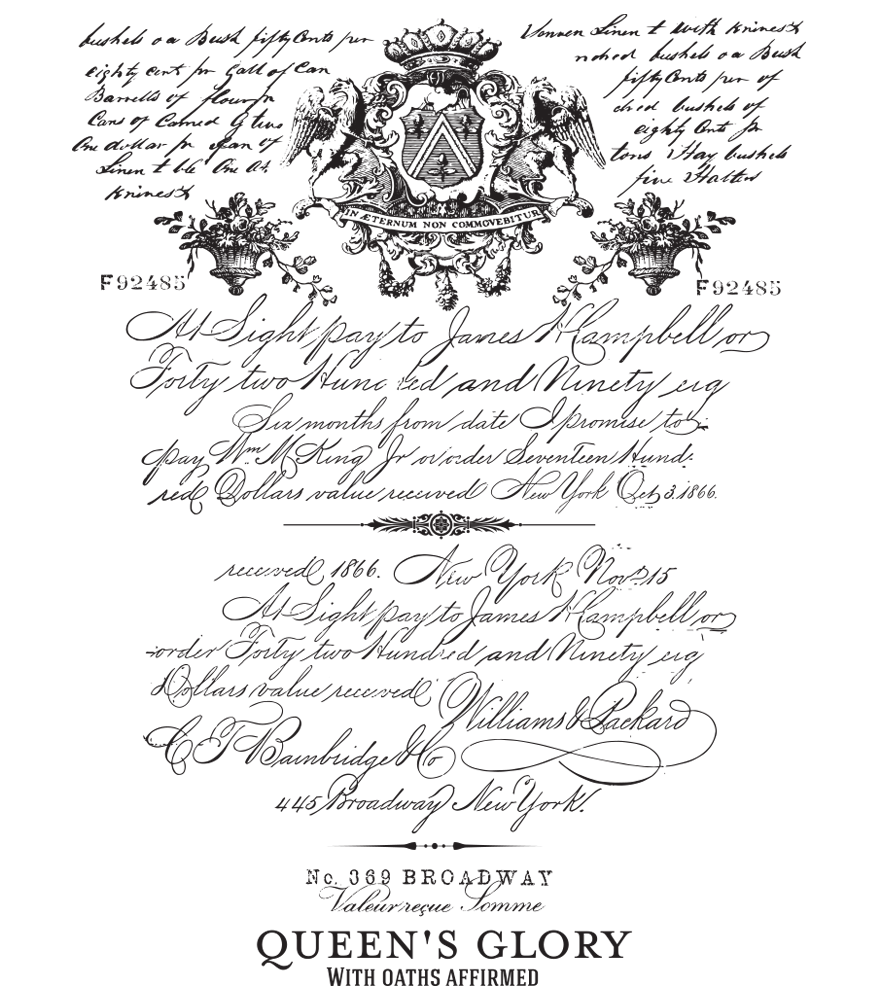 bushels oa Bush fifty Cents per
eighty cent pr Gall of Can
Barrells of flour
Cans of Corned
One dollar pr of
Linen t ble One At.
Kniness
Linen t with Kniness
bushels oa Bush
fifty Cents per of
bushels of
eighty Cents pr
tons Hay bushels
five Halters
IN ÆTERNUM NON COMMOVEBITUR
F92485
F92485
At Sight pay to James H Campbell or
Forty two Hundred and Ninety eig
Six months from date I promise to
pay Wm M King Jr or order Seventeen Hund-
red Dollars value received New York Oct 3. 1866.
received 1866. New York Nov 15
At Sight pay to James H Campbell or
order Forty two Hundred and Ninety eig
Dollars value received
Williams & Packard
C T Bambridge & Co
445 Broadway New York.
No. 369 BROADWAY
Valeur reçue Somme
QUEEN'S GLORY
WITH OATHS AFFIRMED